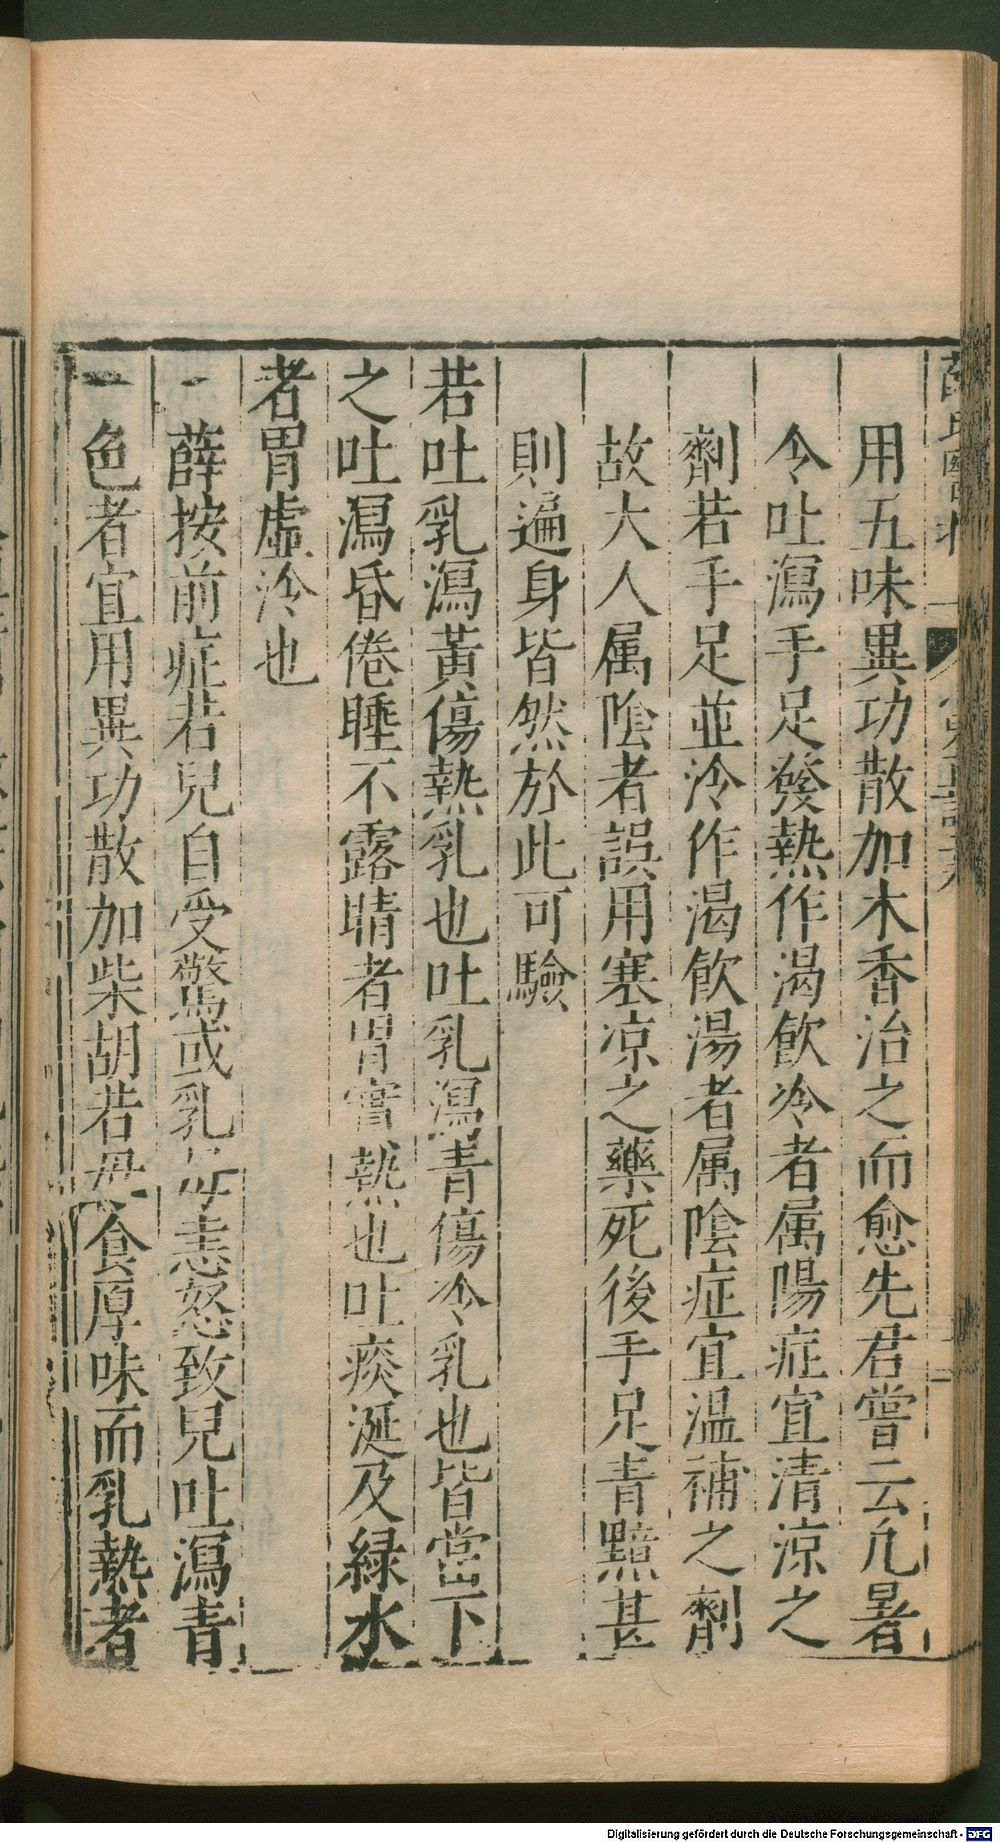 用五味異功散加木香治之而愈先君嘗云凢暑
令吐瀉手足發熱作渴飲冷者属陽症宜清凉之
劑若手足並冷作渴飲湯者属陰症宜温補之劑
故大人属陰者誤用塞凉之藥死後手足青黯甚
則遍身皆然於此可驗
若吐乳瀉黃傷熱乳也吐乳瀉青傷冷乳也皆當下
之吐瀉昏倦睡不露睛者胃實熱也吐痰涎及緑水
者胃虛冷也
一薛按前症若兒自受驚或乳母恚怒致兒吐瀉青
一色者宜用異功散加柴胡若母食厚味而乳熱者
Digitalisierung gefördert durch die Deutsche Forschungsgemeinschaft - DFG